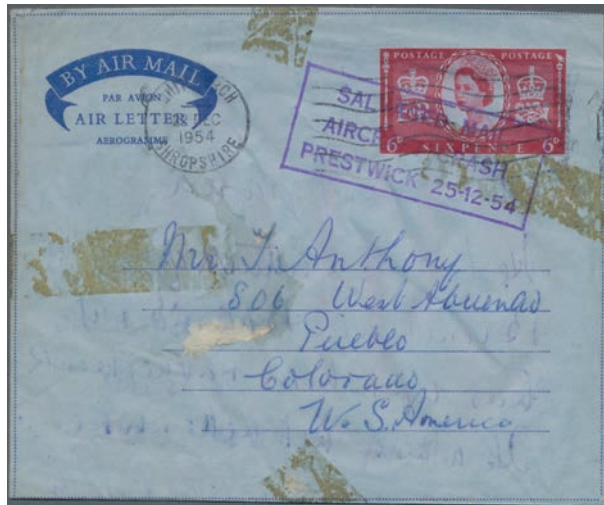 BY AIR MAIL
PAR AVION
AIR LETTER
AEROGRAMME
DEC
1954
SHROPSHIRE
POSTAGE POSTAGE
6D SIXPENCE 6D
MAIL
AIRCR CRASH
PRESTWICK 25-12-54
Mr. J. Anthony
806 West Abuendo
Pueblo
Colorado
U.S. America